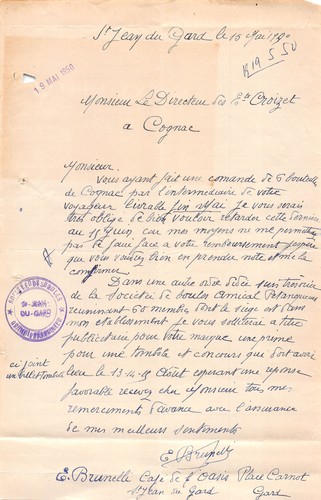 St Jean du Gard le 15 Mai 1950
19 MAI 1950
R 19 5 50
Monsieur Le Directeur des Ets Croizet
a Cognac
Monsieur.
Vous ayant fait une comande de 6 bouteilles
de Cognac par l'entermédiaire de votre
voyageur livrable fin Mai Je vous serais
tres oblige de bien vouloir retarder cette dernière
au 15 Juin car mes moyens ne me permettent
pas de faire face a votre remboursement j'espère
que vous voudrez bien en prendre note et me la
confirmer
Dans une autre ordre d'idée suis trésorier
de la Société de boules amical Petanqueurs
reunissant 60 membres dont le siège est dans
mon etablissement je vous solliterai a titre
publicitaire pour votre marque une prime
pour une tombola et concours que sont avoir
lieu le 13-14-15 Août esperant une reponse
favorable recevez cher Monsieur tous mes
remerciements d'avance avec l'assurance
de mes meilleurs sentiments
ST-JEAN-
DU-GARD
ci joint
un billet tombola
E. Brunelle
E. Brunelle Café de l'Oasis Place Carnot
St Jean du Gard Gard